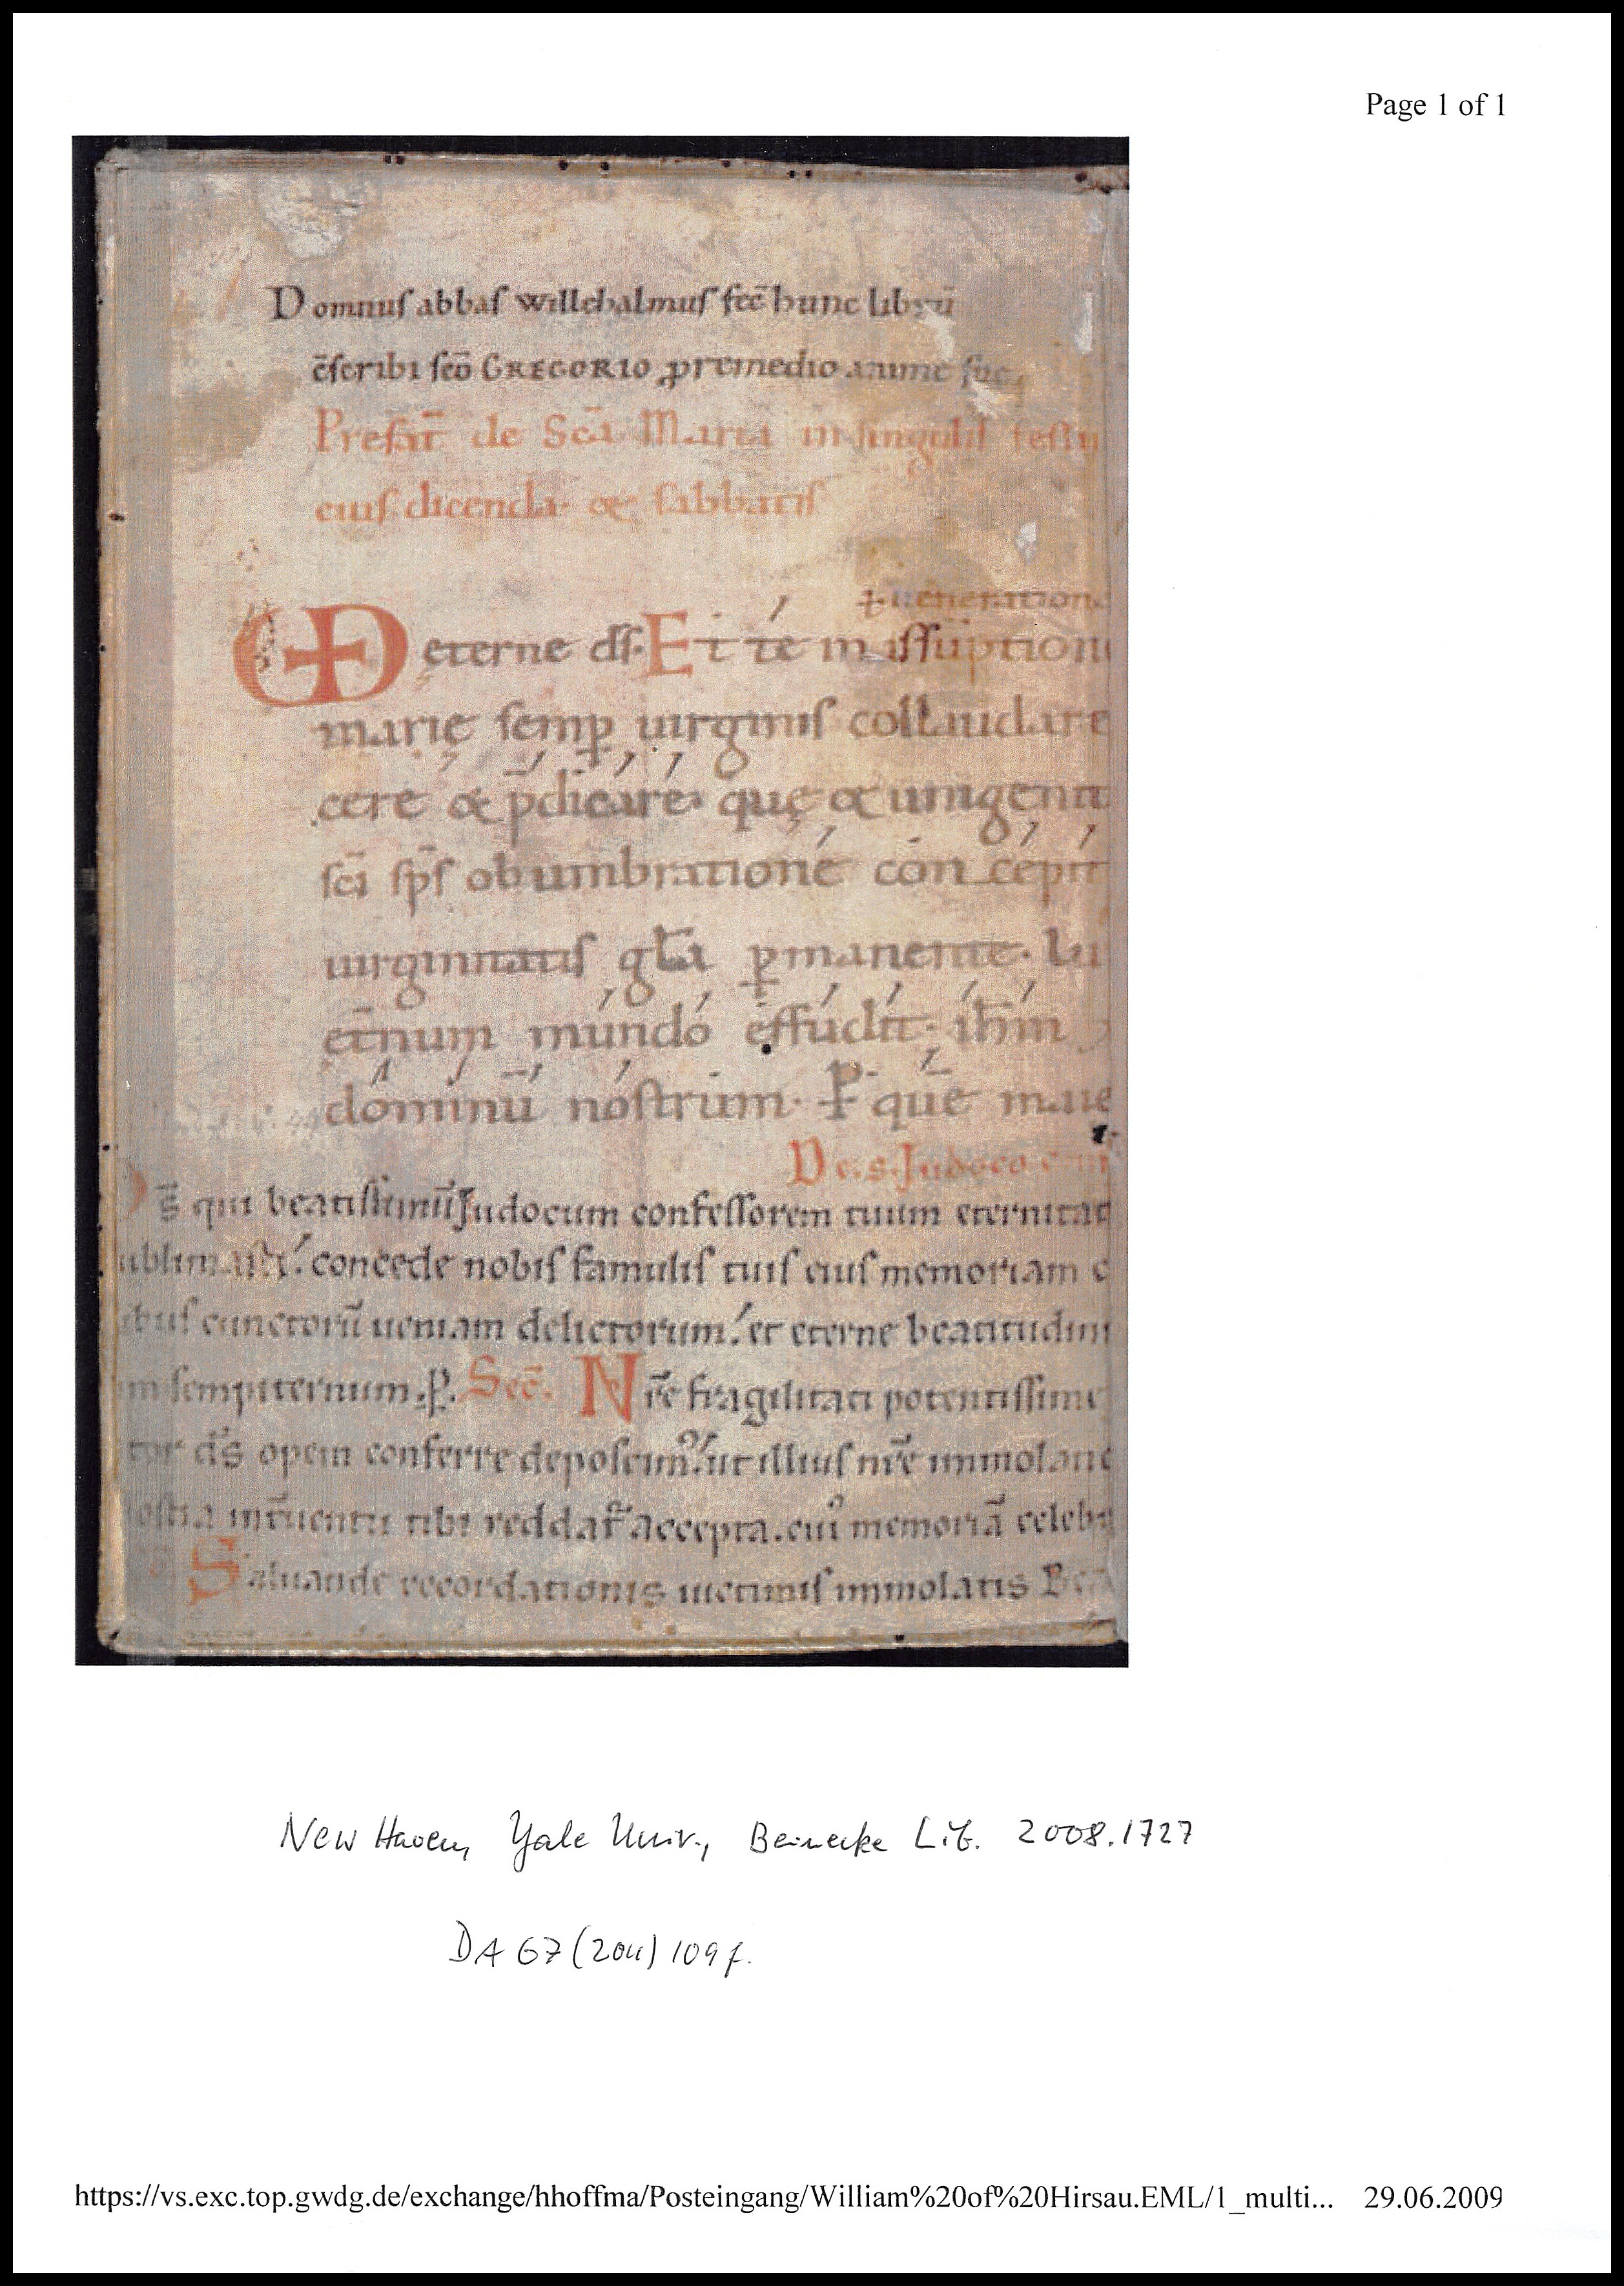 Page 1 of 1
Domnus abbas willehalmus fec̄ hunc librū
c̄scribi sc̄o GREGORIO ꝓ remedio anime sue,
Prefat̄ de Sc̄a Maria in singulis festiu
eius dicenda. & sabbatis
ueneratione
VD eterne ds̄. Et te in assūption
marie semꝑ uirginis collaudare
cere & p̄dicare. quę & unigenit
sc̄i sp̄s obumbratione concepit
uirginitatis gl̄a ꝑmanente. lu
et̄num mundo effudit. ih̄m
dominū nostrum. P̶ quē maie
De. s. Judoco
D s̄ qui beatissimū Judocum confessorem tuum eternitat
ublimasti. concede nobis famulis tuis eius memoriam c
ibus cunctorū ueniam delictorum. et eterne beatitudini
m sempiternum. p. Sec̄. Nr̄e fragilitati potentissime
tor ds̄ opem conferre deposcimꝰ. ut illius nr̄e immolatio
ostia int̄uentu tibi reddat᷑ accepta. cuiꝰ memoriā celeb
Saluande recordationis uictimis immolatis Bea
New Haven, Yale Univ., Beinecke Lib. 2008.1727
DA 67 (2011) 109 f.
https://vs.exc.top.gwdg.de/exchange/hhoffma/Posteingang/William%20of%20Hirsau.EML/1_multi... 29.06.2009